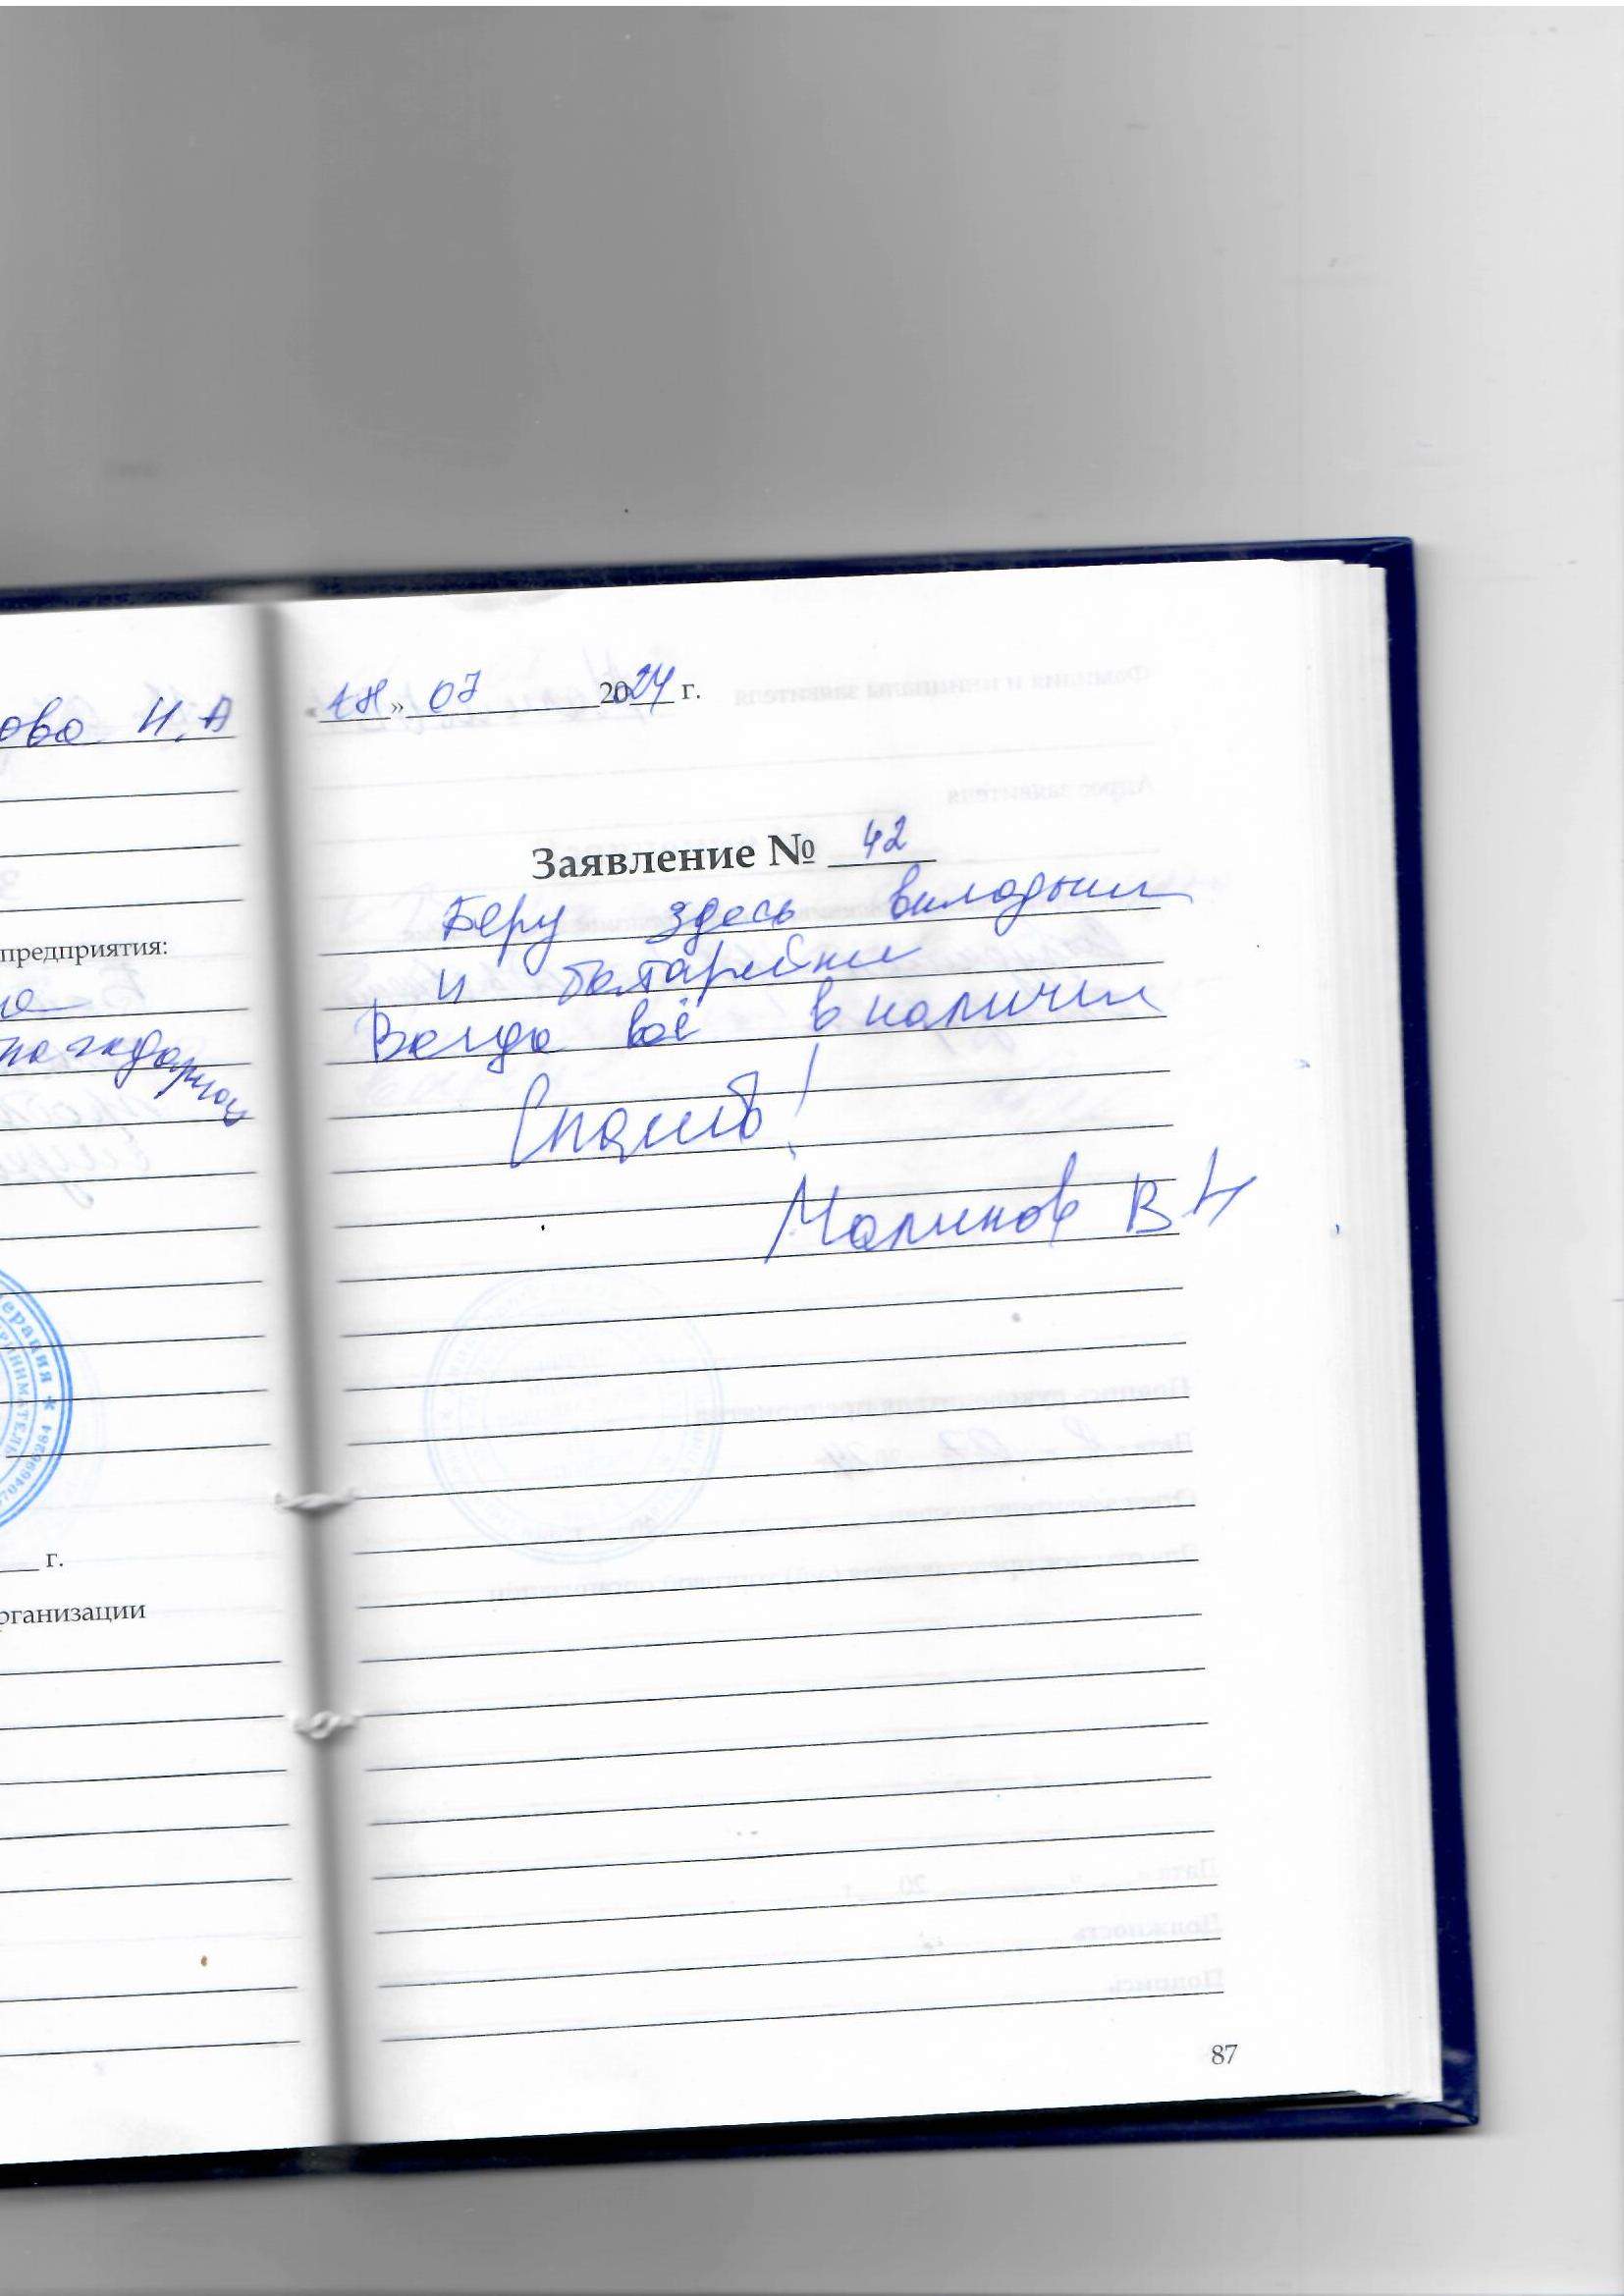 ова Н.А
предприятия:
г.
рганизации
» 07 2024 г.
Заявление № 42
Беру здесь вкладыши
и батарейки
Всегда всё в наличии
Спасибо!
Малинов В Н
87